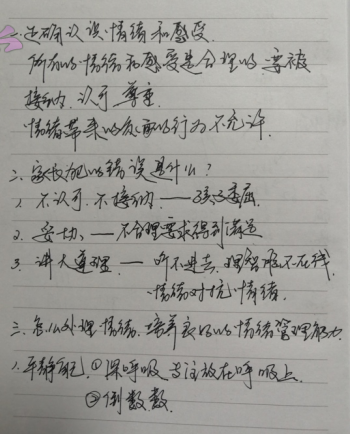 一、正确认识情绪和感受
所有的情绪和感受是合理的,要被
接纳、认可、尊重
情绪带来的负面的行为不允许.
二、家长犯的错误是什么?
1. 不认可、不接纳——孩子委屈.
2. 妥协、——不合理要求得到满足
3. 讲大道理——听不进去,理智脑不在线.
情绪对抗情绪.
三、怎么处理情绪、培养良好的情绪管理能力
1. 平静自己 ①深呼吸 专注放在呼吸上
②倒数数.